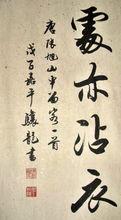 處亦沾衣
唐張旭山中留客一首
戊子嘉平驥龍書